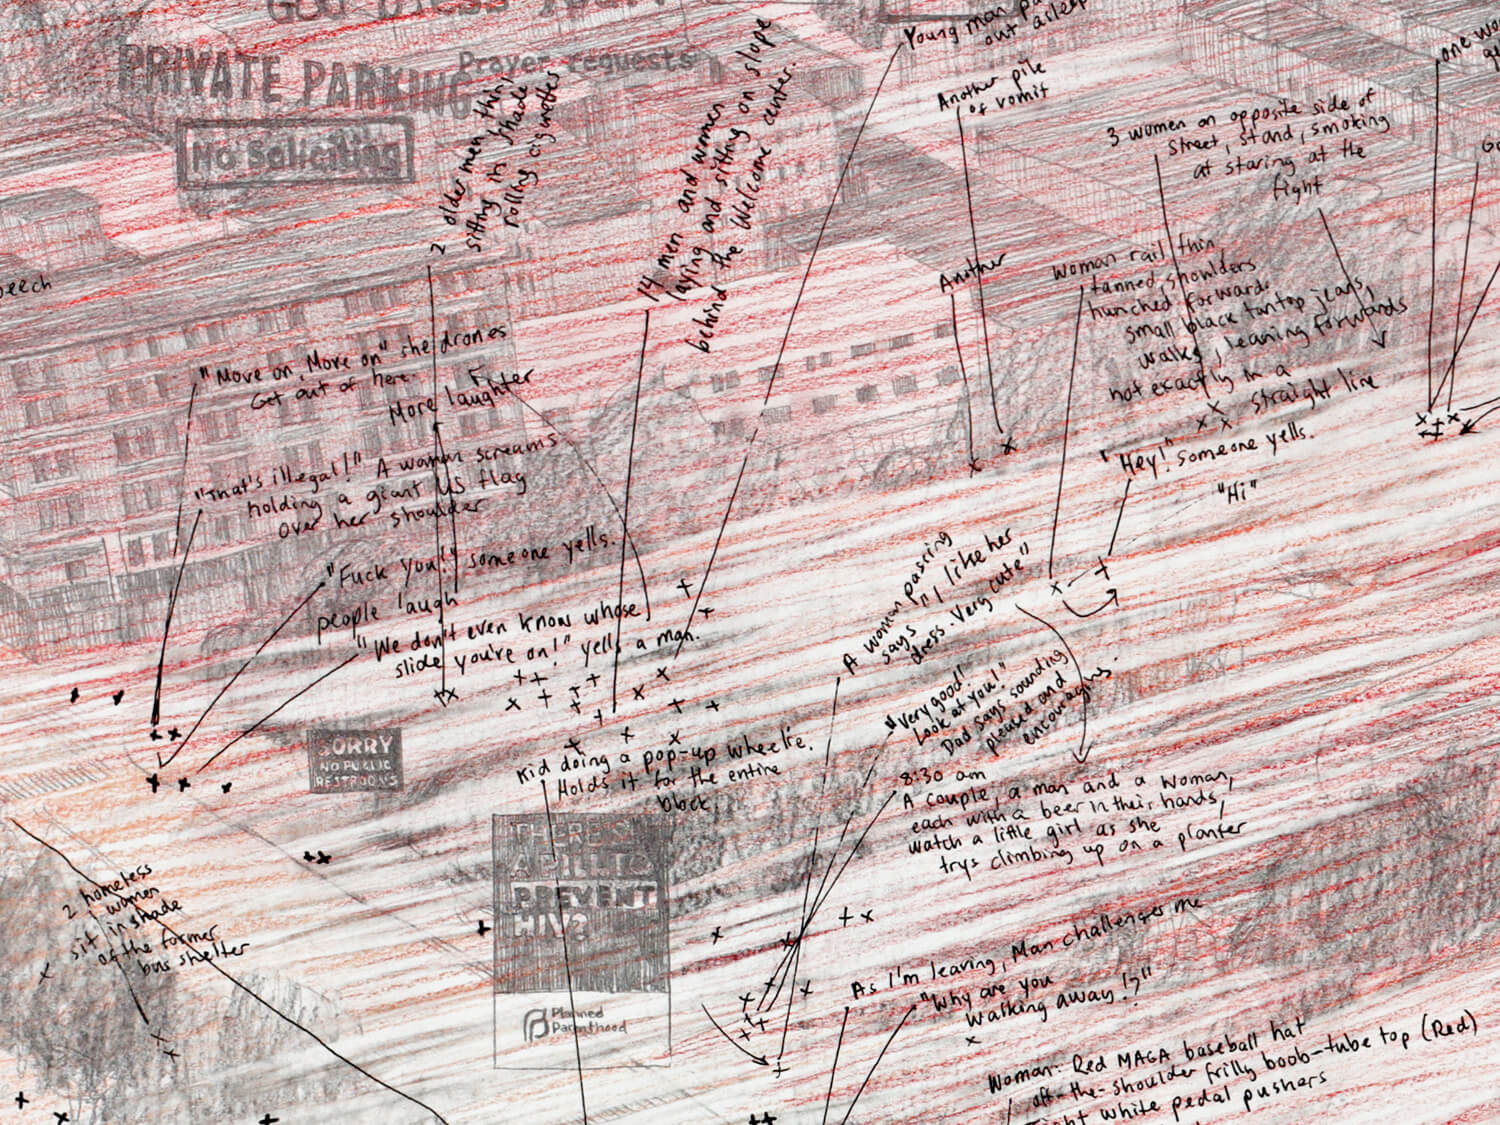 PRIVATE PARKING
Prayer requests
No Soliciting
2 older men thin
sitting in shade
rolling cigarettes
14 men and women
laying and sitting on slope
behind the Welcome center.
Young man
out asleep
Another pile
of vomit
3 women on opposite side of
street, stand, smoking
at staring at the
fight
one
Another
Woman rail thin,
tanned, shoulders
hunched forward.
small black tantop jeans,
walks, leaning forwards
not exactly in a
straight line
"Hey!" someone yells.
"Hi"
"Move on, Move on" she drones
Get out of here.
More laughter
"That's illegal!" A woman screams
holding a giant US flag
over her shoulder
"Fuck You!" someone yells.
people laugh
"We don't even know whose
slide you're on!" yells a man.
SORRY
NO PUBLIC
RESTROOMS
Kid doing a pop-up wheelie.
Holds it for the entire
block.
THERE'S
A PILL TO
PREVENT
HIV?
Planned
Parenthood
A woman passing
says "I like her
dress. Very cute"
"Very good!
Look at you!"
Dad says sounding
pleased and
encouraging.
8:30 am
A couple, a man and a woman,
each with a beer in their hands,
watch a little girl as she
trys climbing up on a planter
2 homeless
women
sit in shade
of the former
bus shelter
As I'm leaving, Man challenges me
"Why are you
walking away!?"
Woman: Red MAGA baseball hat
off-the-shoulder frilly boob-tube top (Red)
white pedal pushers